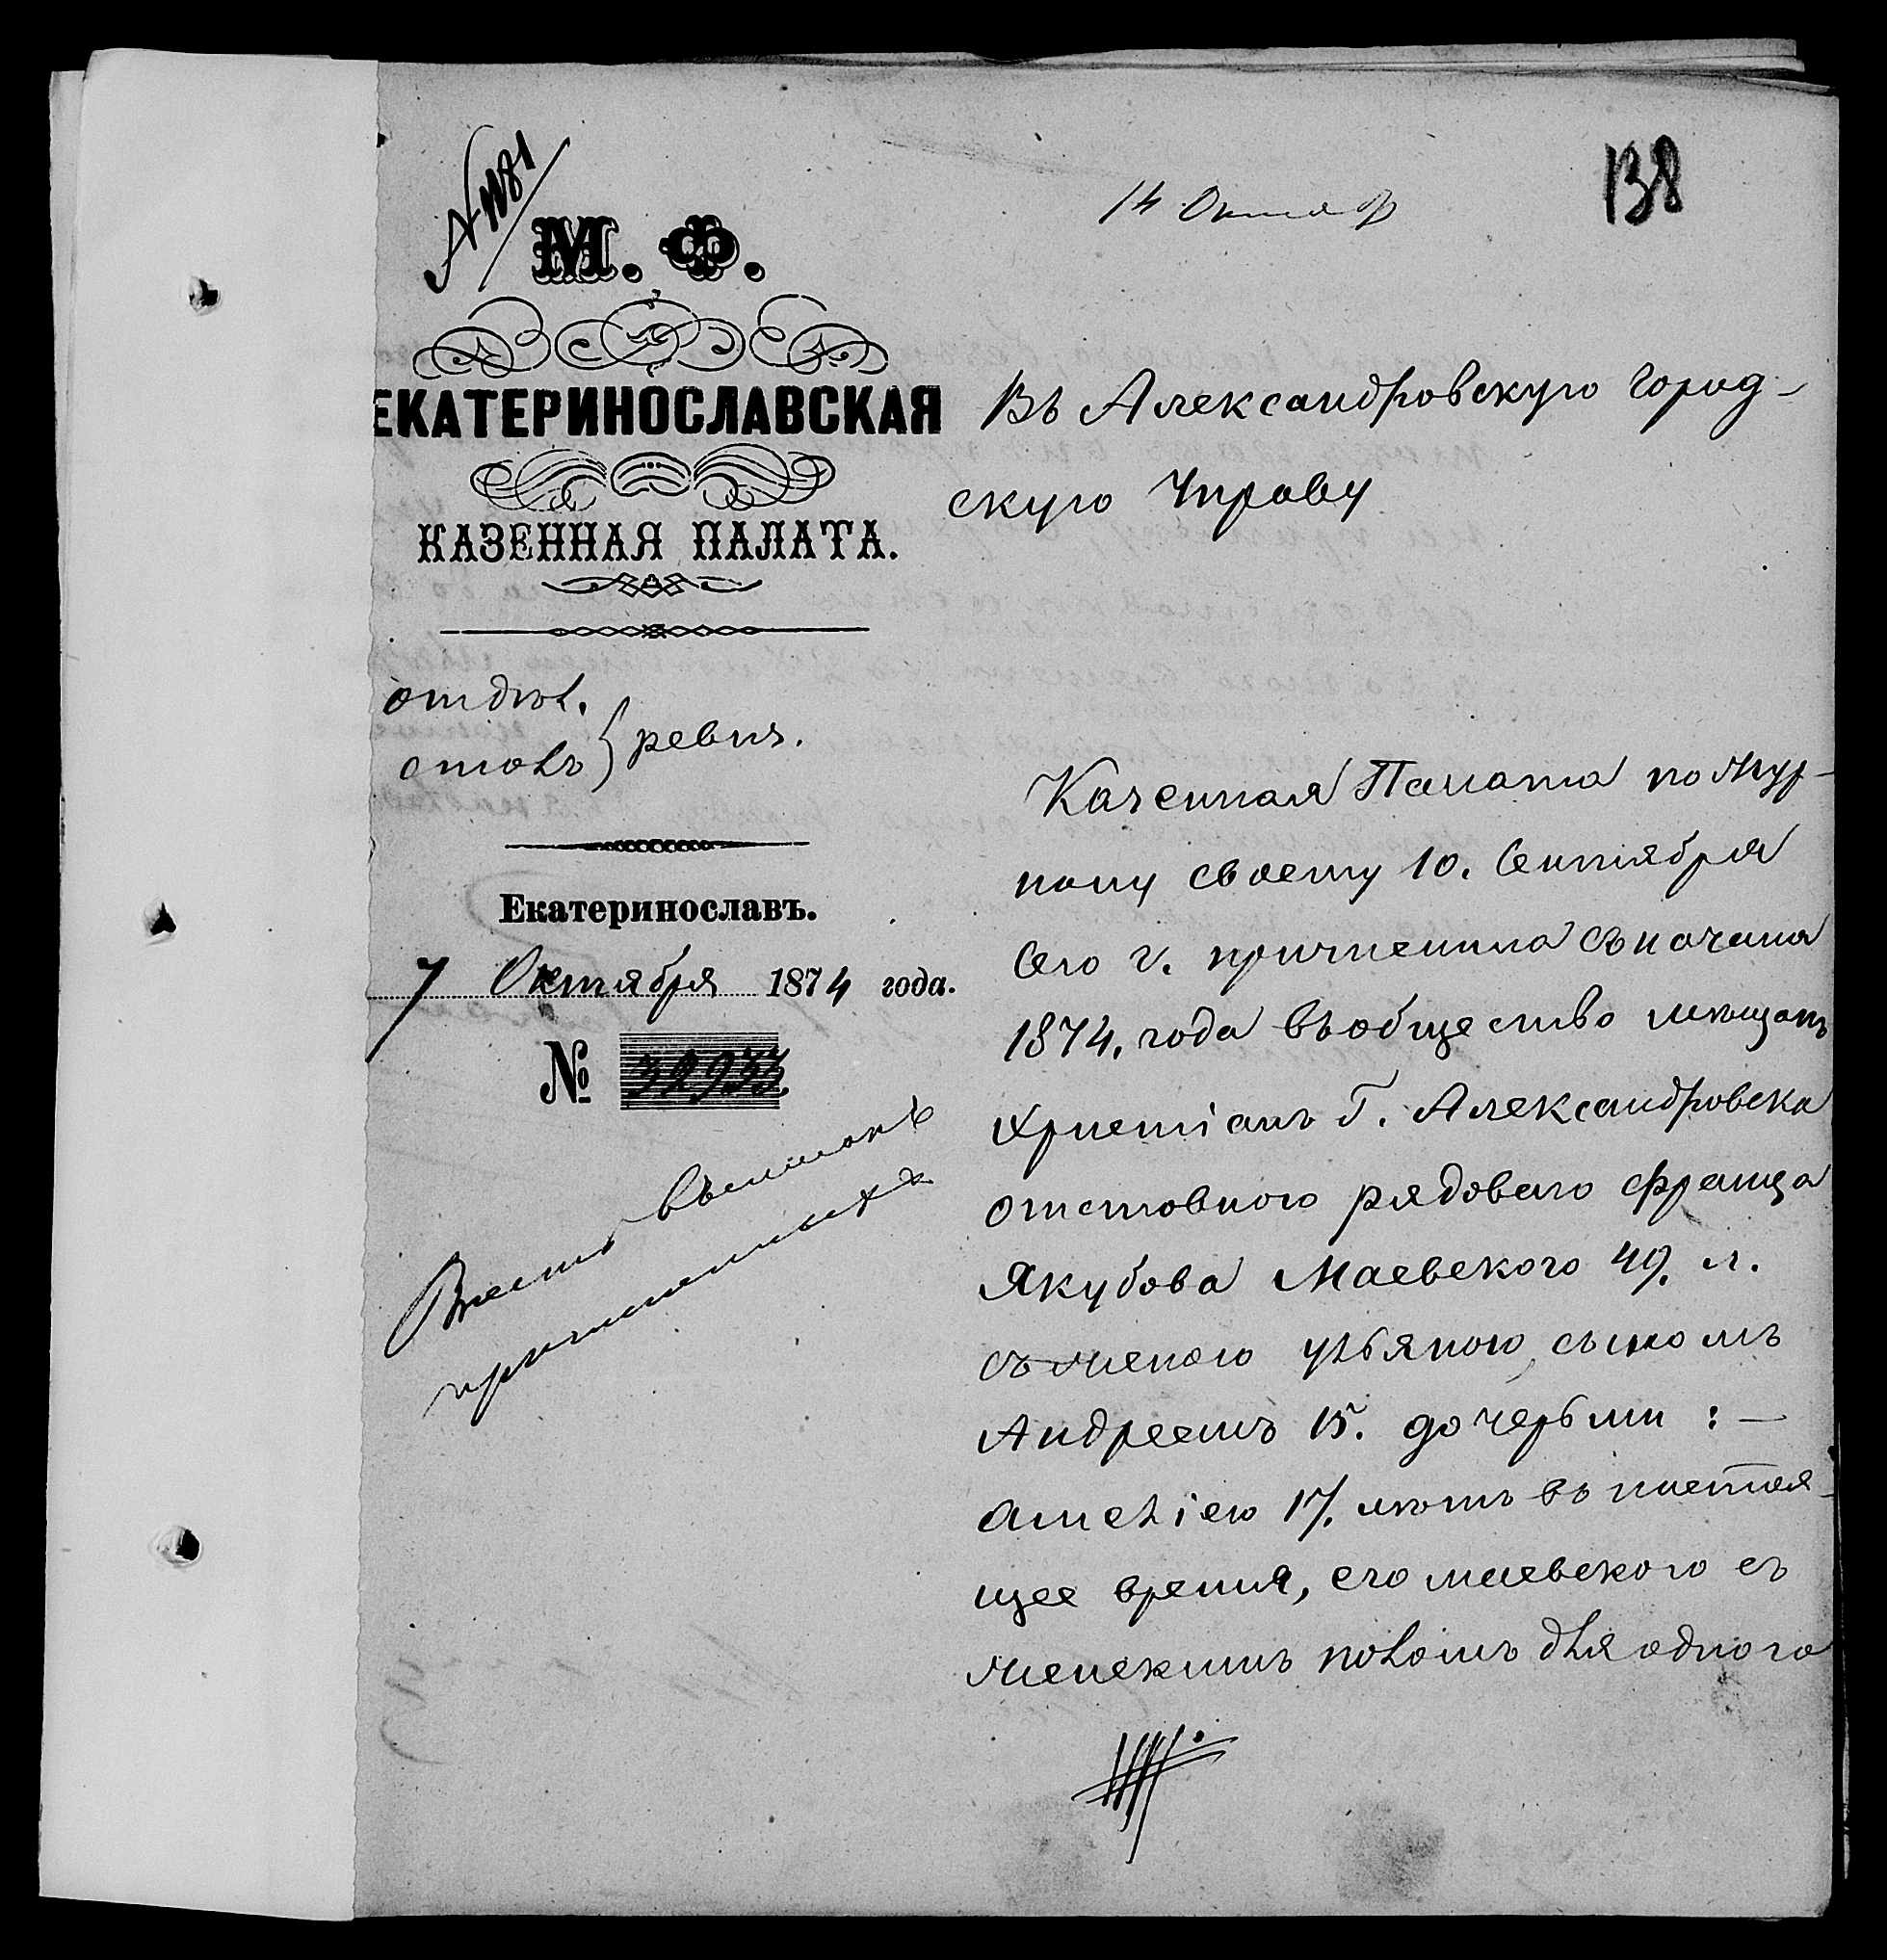 138
14 Октяр
М. Ф.
ЕКАТЕРИНОСЛАВСКАЯ
КАЗЕННАЯ ПАЛАТА.
отдѣл.
столъ } ревиз.
Екатеринославъ.
7 Октября 1874 года.
№ 32933.
Внести въ списокъ
причисленныхъ
Въ Александровскую Город-
скую Управу
Казенная Палата по жур-
налу своему 10. Сентября
сего г. причислила съ начала
1874. года въ общество мещанъ
христіанъ г. Александровска
отставного рядового Франца
Якубова Маевского 49. л.
съ женою Ульяною, сыномъ
Андреемъ 15. дочерьми : —
Амеліею 17. лѣтъ въ настоя-
щее время, его маевского съ
женскимъ поломъ для одного